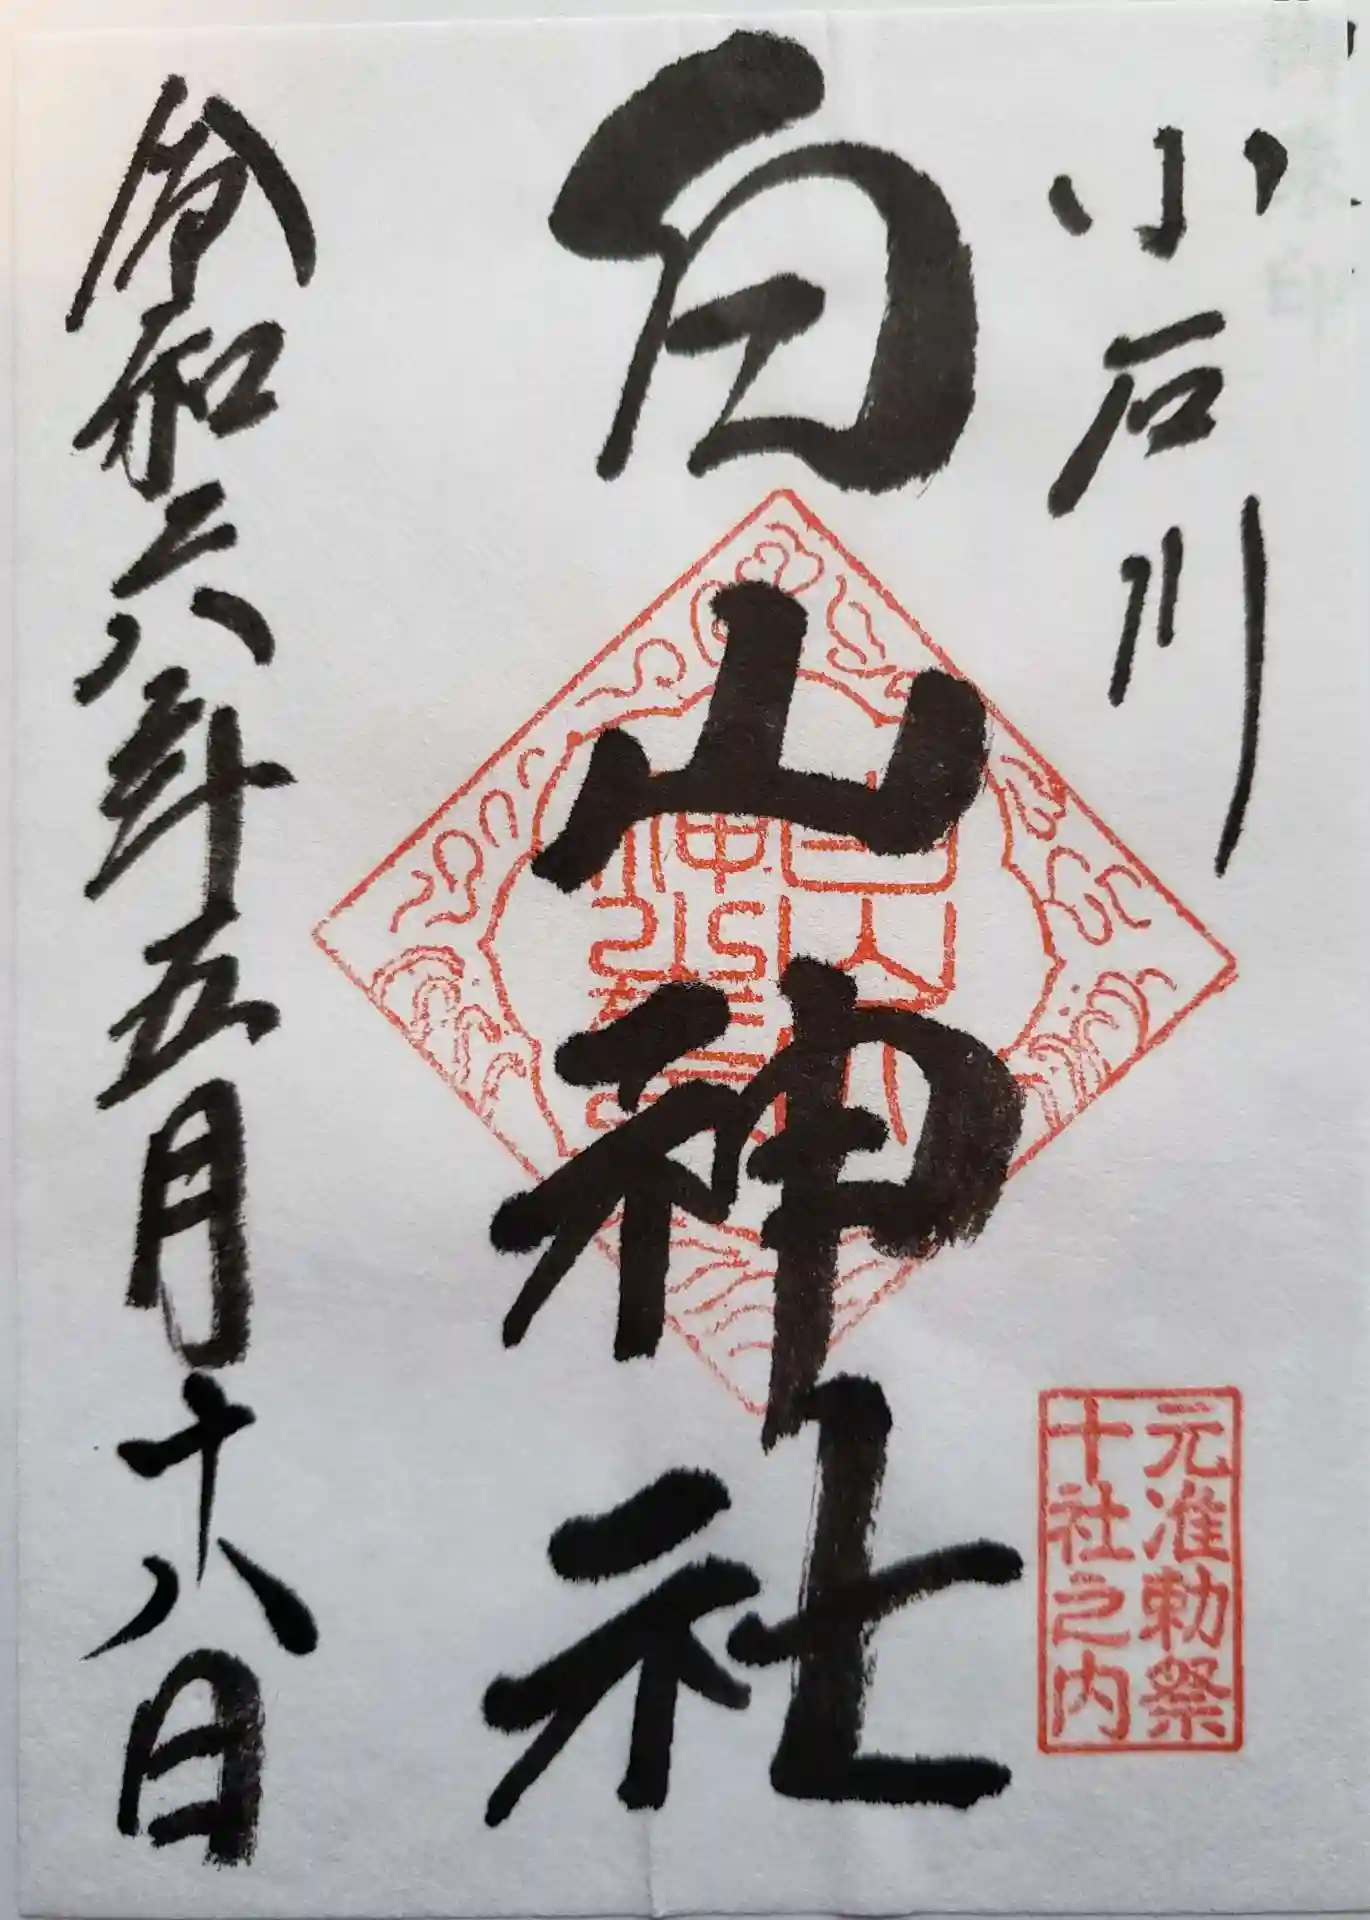 小石川
元准勅祭
十社之内
白山神社
令和六年五月十八日